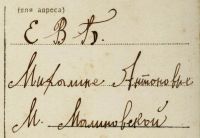 (для адреса)
Е В Б.
Марьянне Антоновне
М. Малиновской